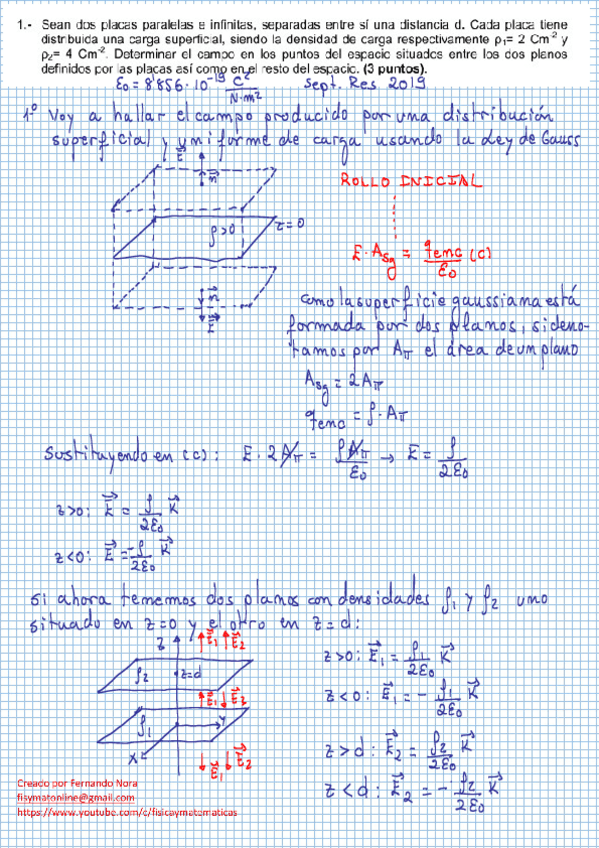 1.- Sean dos placas paralelas e infinitas, separadas entre sí una distancia d. Cada placa tiene
distribuida una carga superficial, siendo la densidad de carga respectivamente ρ₁= 2 Cm⁻² y
ρ₂= 4 Cm⁻². Determinar el campo en los puntos del espacio situados entre los dos planos
definidos por las placas así como en el resto del espacio. (3 puntos).
ε₀ = 8'856·10⁻¹⁹ C²/N·m² Sept. Res 2019
1º Voy a hallar el campo producido por una distribución
superficial y uniforme de carga usando la Ley de Gauss
E⃗
n⃗
ROLLO INICIAL
ρ>0
z=0
E·A_sg = q_enc/ε₀ (c)
n⃗
E⃗
Como la superficie gaussiana está
formada por dos planos, si deno-
tamos por A_π el área de un plano
A_sg = 2A_π
q_enc = ρ·A_π
Sustituyendo en (c): E·2A_π = ρA_π/ε₀ → E = ρ/2ε₀
z>0: E⃗ = ρ/2ε₀ K⃗
z<0: E⃗ = -ρ/2ε₀ K⃗
Si ahora tenemos dos planos con densidades ρ₁ y ρ₂ uno
situado en z=0 y el otro en z=d:
z E⃗₁ E⃗₂
ρ₂ z=d
E⃗₁ E⃗₂
ρ₁ y
x
E⃗₁ E⃗₂
z>0: E⃗₁ = ρ₁/2ε₀ K⃗
z<0: E⃗₁ = -ρ₁/2ε₀ K⃗
z>d: E⃗₂ = ρ₂/2ε₀ K⃗
z<d: E⃗₂ = -ρ₂/2ε₀ K⃗
Creado por Fernando Nora
fisymatonline@gmail.com
https://www.youtube.com/c/fisicaymatematicas